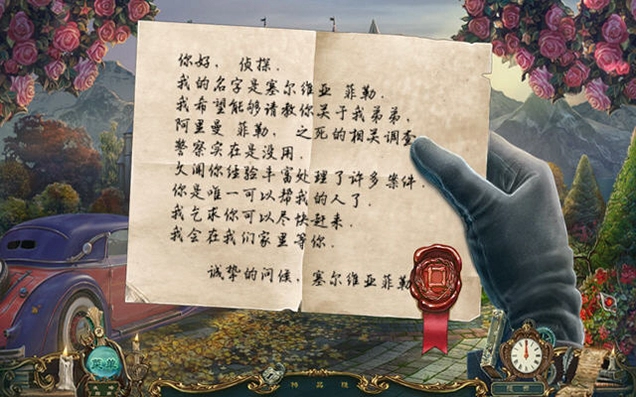 你好， 侦探．
我的名字是塞尔维亚 菲勒．
我希望能够请教你关于我弟弟，
阿里曼 菲勒， 之死的相关调查
警察实在是没用．
久闻你经验丰富处理了许多案件．
你是唯一可以帮我的人了．
我乞求你可以尽快赶来．
我会在我们家里等你．
诚挚的问候，塞尔维亚菲勒